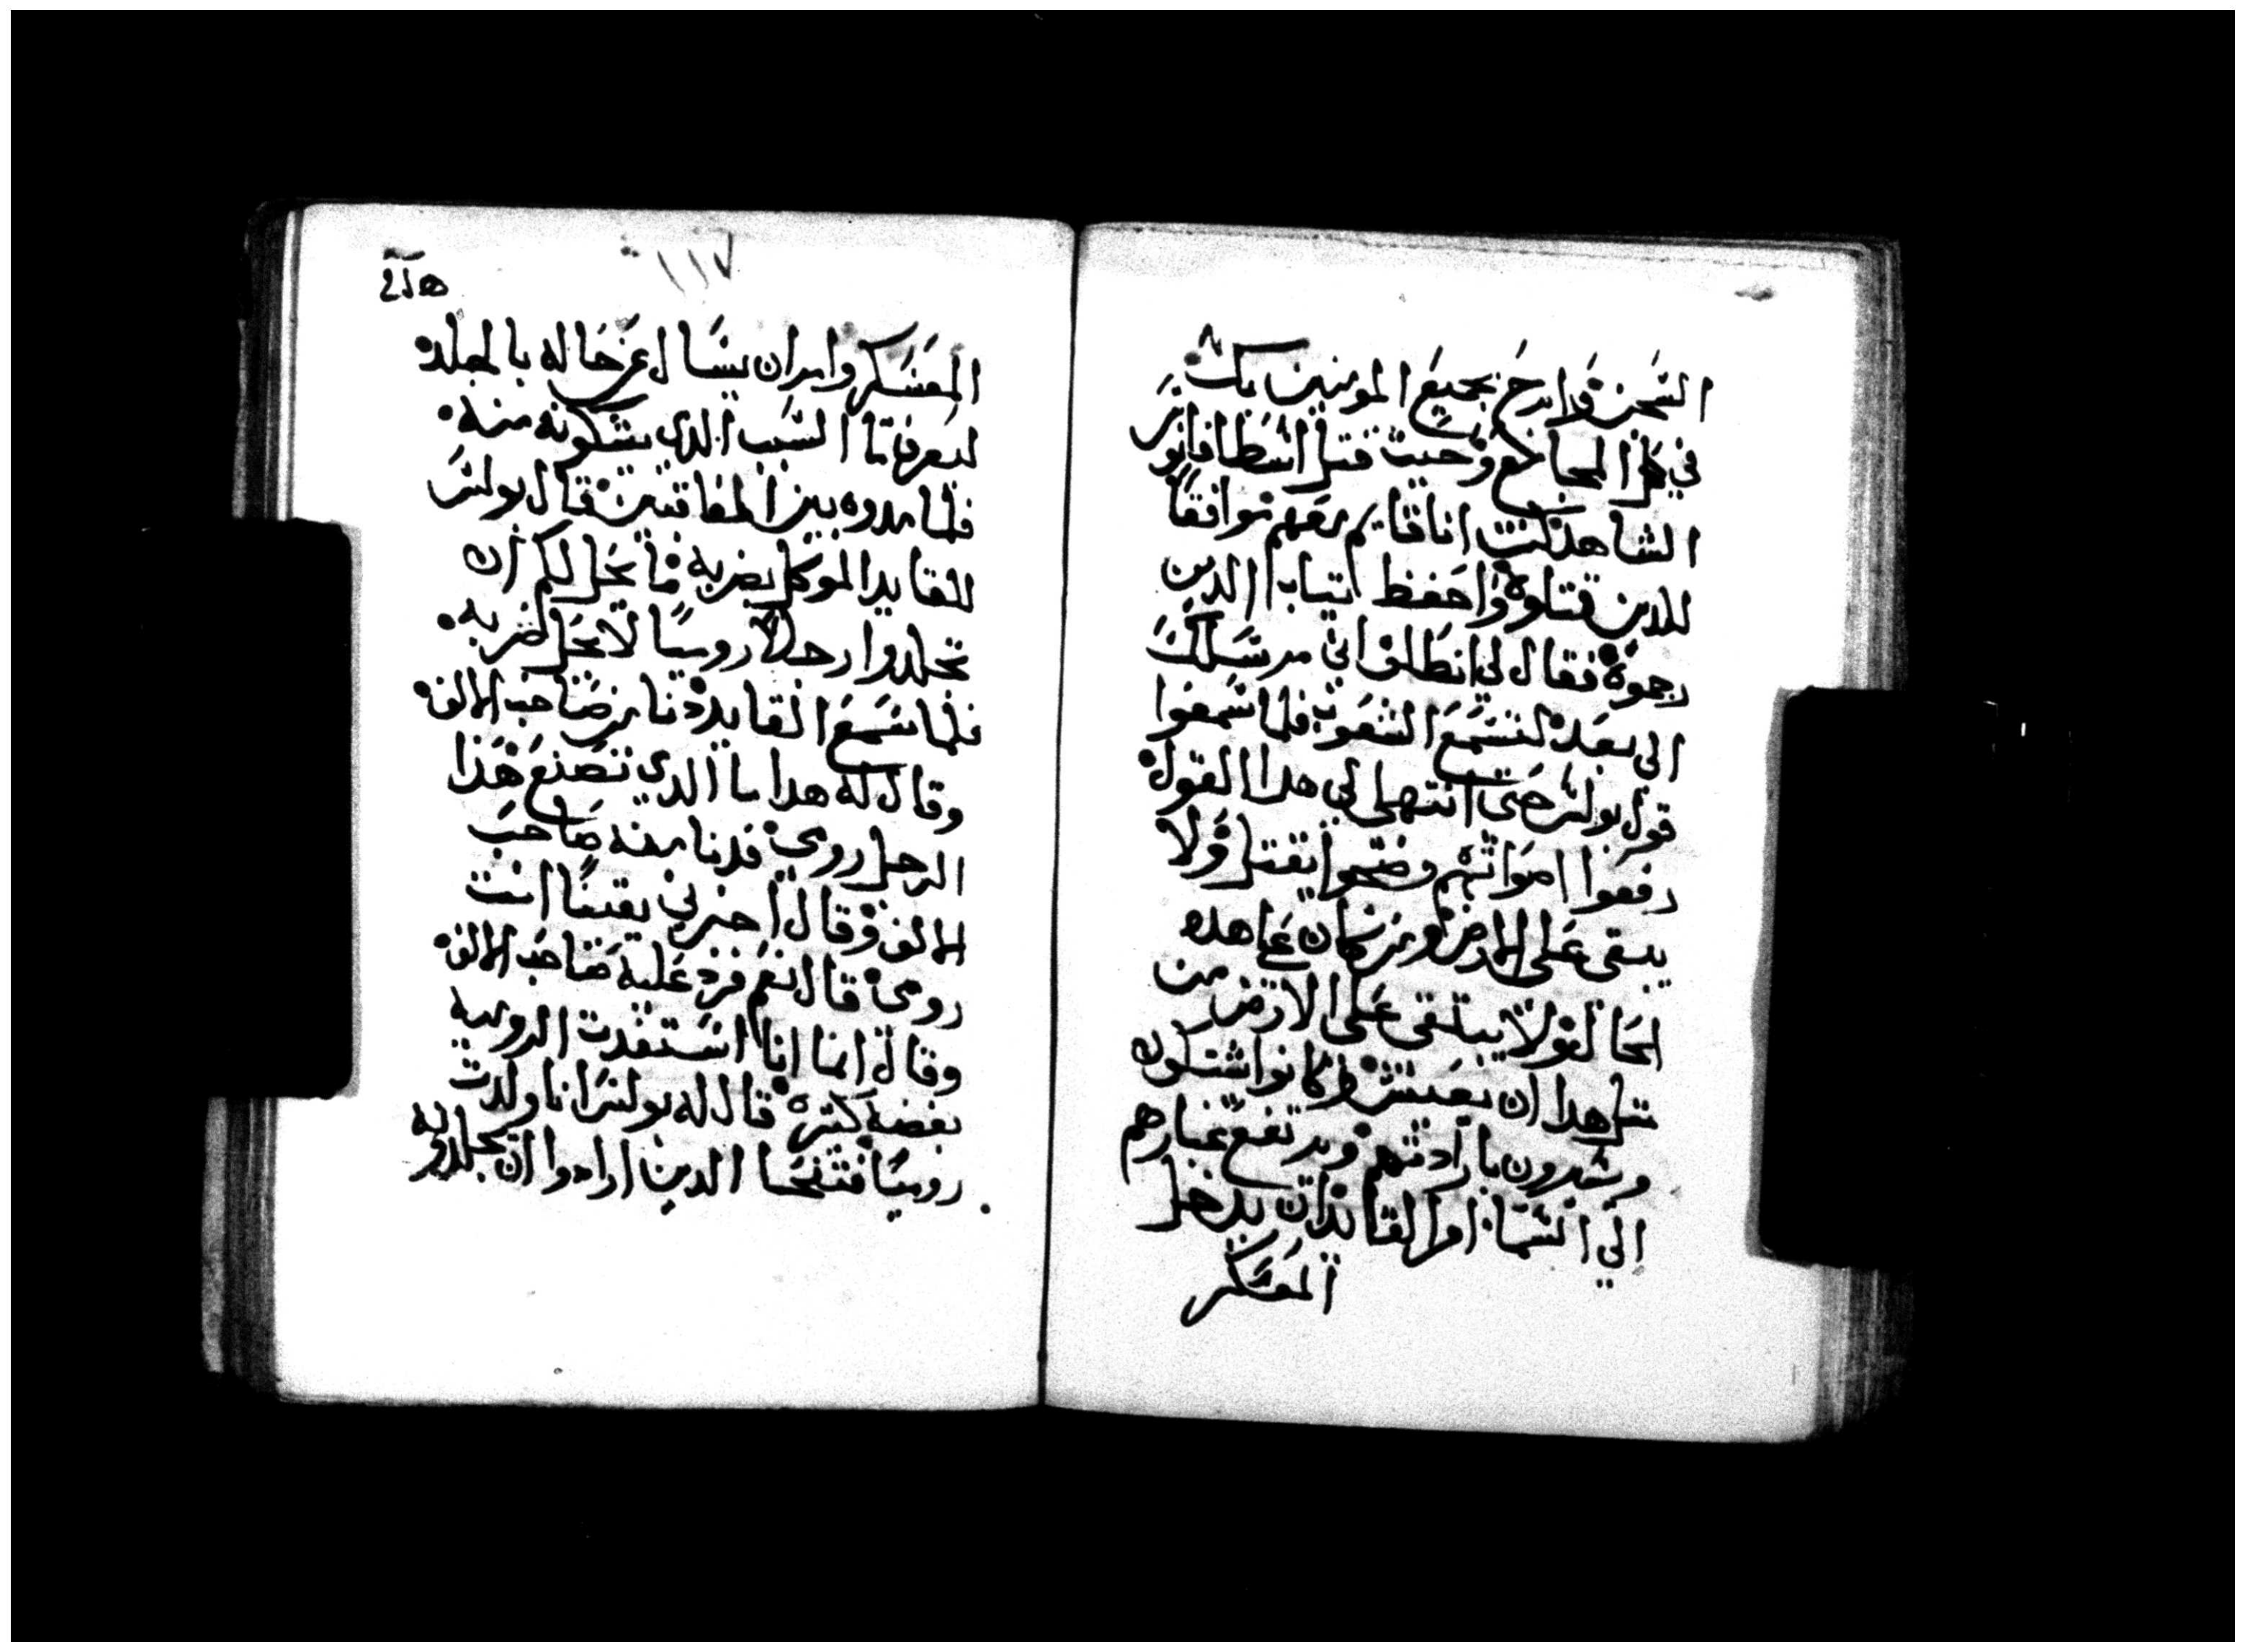 السجن واسرح بجميع المومنين بك
في كل المجامع وحيث قتل اسطافانوس
الشاهد كنت انا قايم معهم موافقاً
للذين قتلوه واحفظ تياب الذين
رجموه فقال لي انطلق اني مرسلك
الي بعد لتسمع الشعوب فلما سمعوا
قول بولس حتي انتها الي هدا القول
رفعوا اصواتهم وضجوا يقتل ولا
يبقي علي الارض ومن كان علي هده
الحال ولا يبقي علي الارض من
مثل هدا ان يعيش وكانوا يشتكون
ويشيرون باراديتهم ويرتفع غبارهم
الي السما امر القايد ان يدخل
المعسكر
١١٧
المعسكر وامر ان يسال عن حاله بالجلد
ليعرف ما السبب الدي يشكونه منه
فلما مدوه بين قال بولس
للقايد الموكل بضربه ما يحل لكم ان
تجلدوا رجلا روميًا لا يحل ضربه
فلما سمع القايد دنا من صاحب الالف
وقال له هدا ما الدي تصنع هذا
الرجل رومي فدنا منه صاحب
الالف وقال اخبرني يقينًا انت
رومي قال نعم فرد عليه صاحب الالف
وقال انما انا استفدت الروميه
بفضه كتيره قال له بولس انا ولدت
روميًا فتنحا الدين ارادوا ان يجلدوه